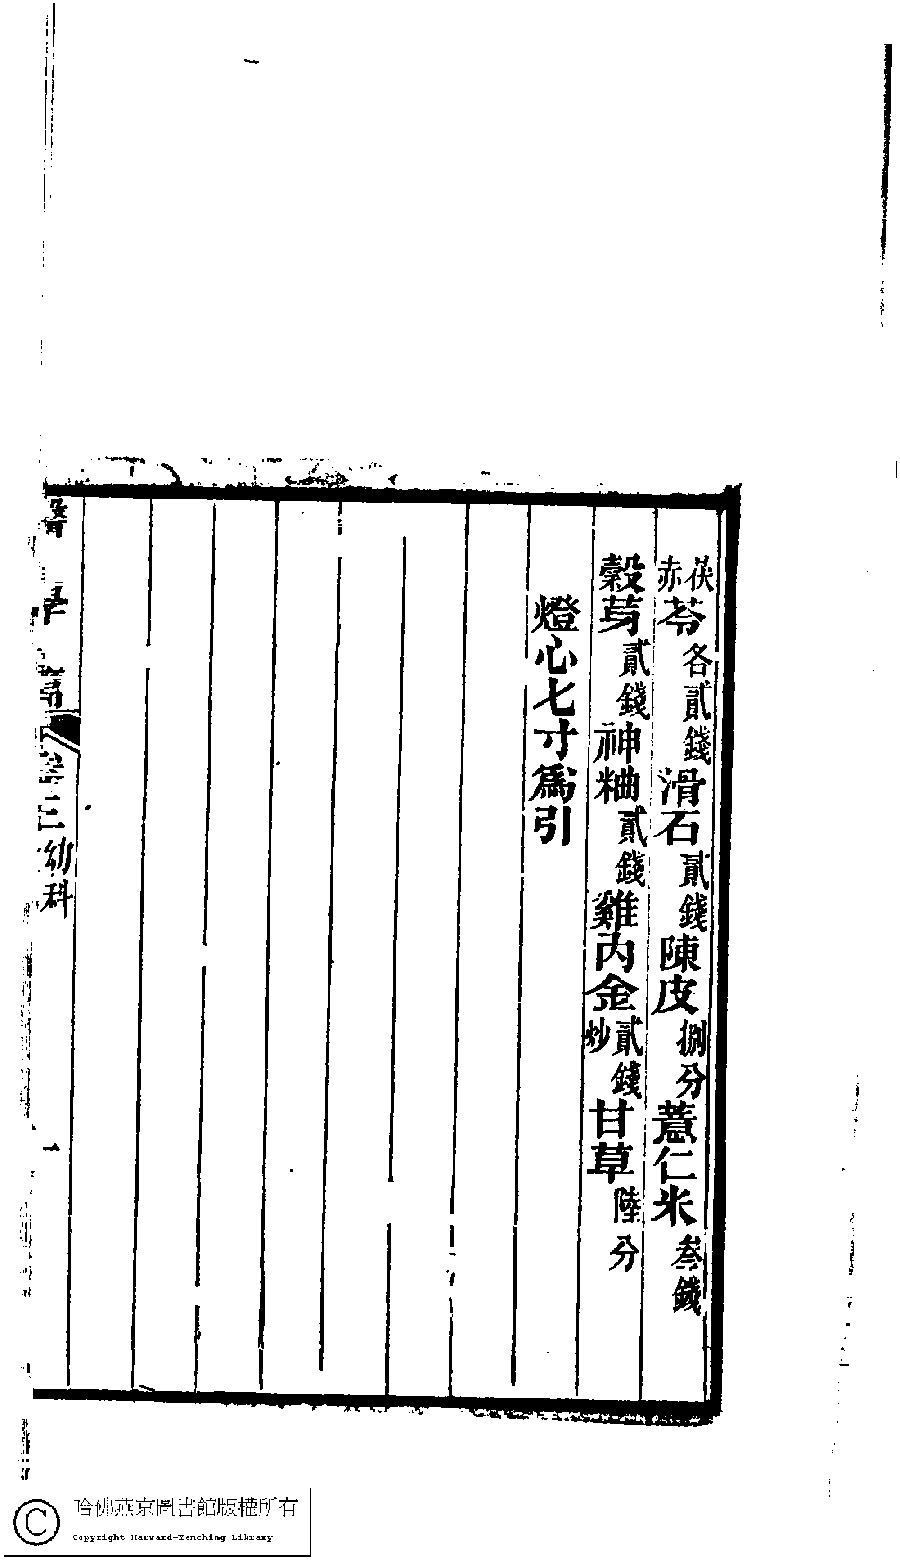 茯赤苓各貳錢滑石貳錢陳皮捌分薏仁米叁錢
糓芽貳錢神粬貳錢雞內金貳錢炒甘草陸分
燈心七寸爲引
三幼科
哈佛燕京圖書館版權所有
Copyright Harvard-Yenching Library